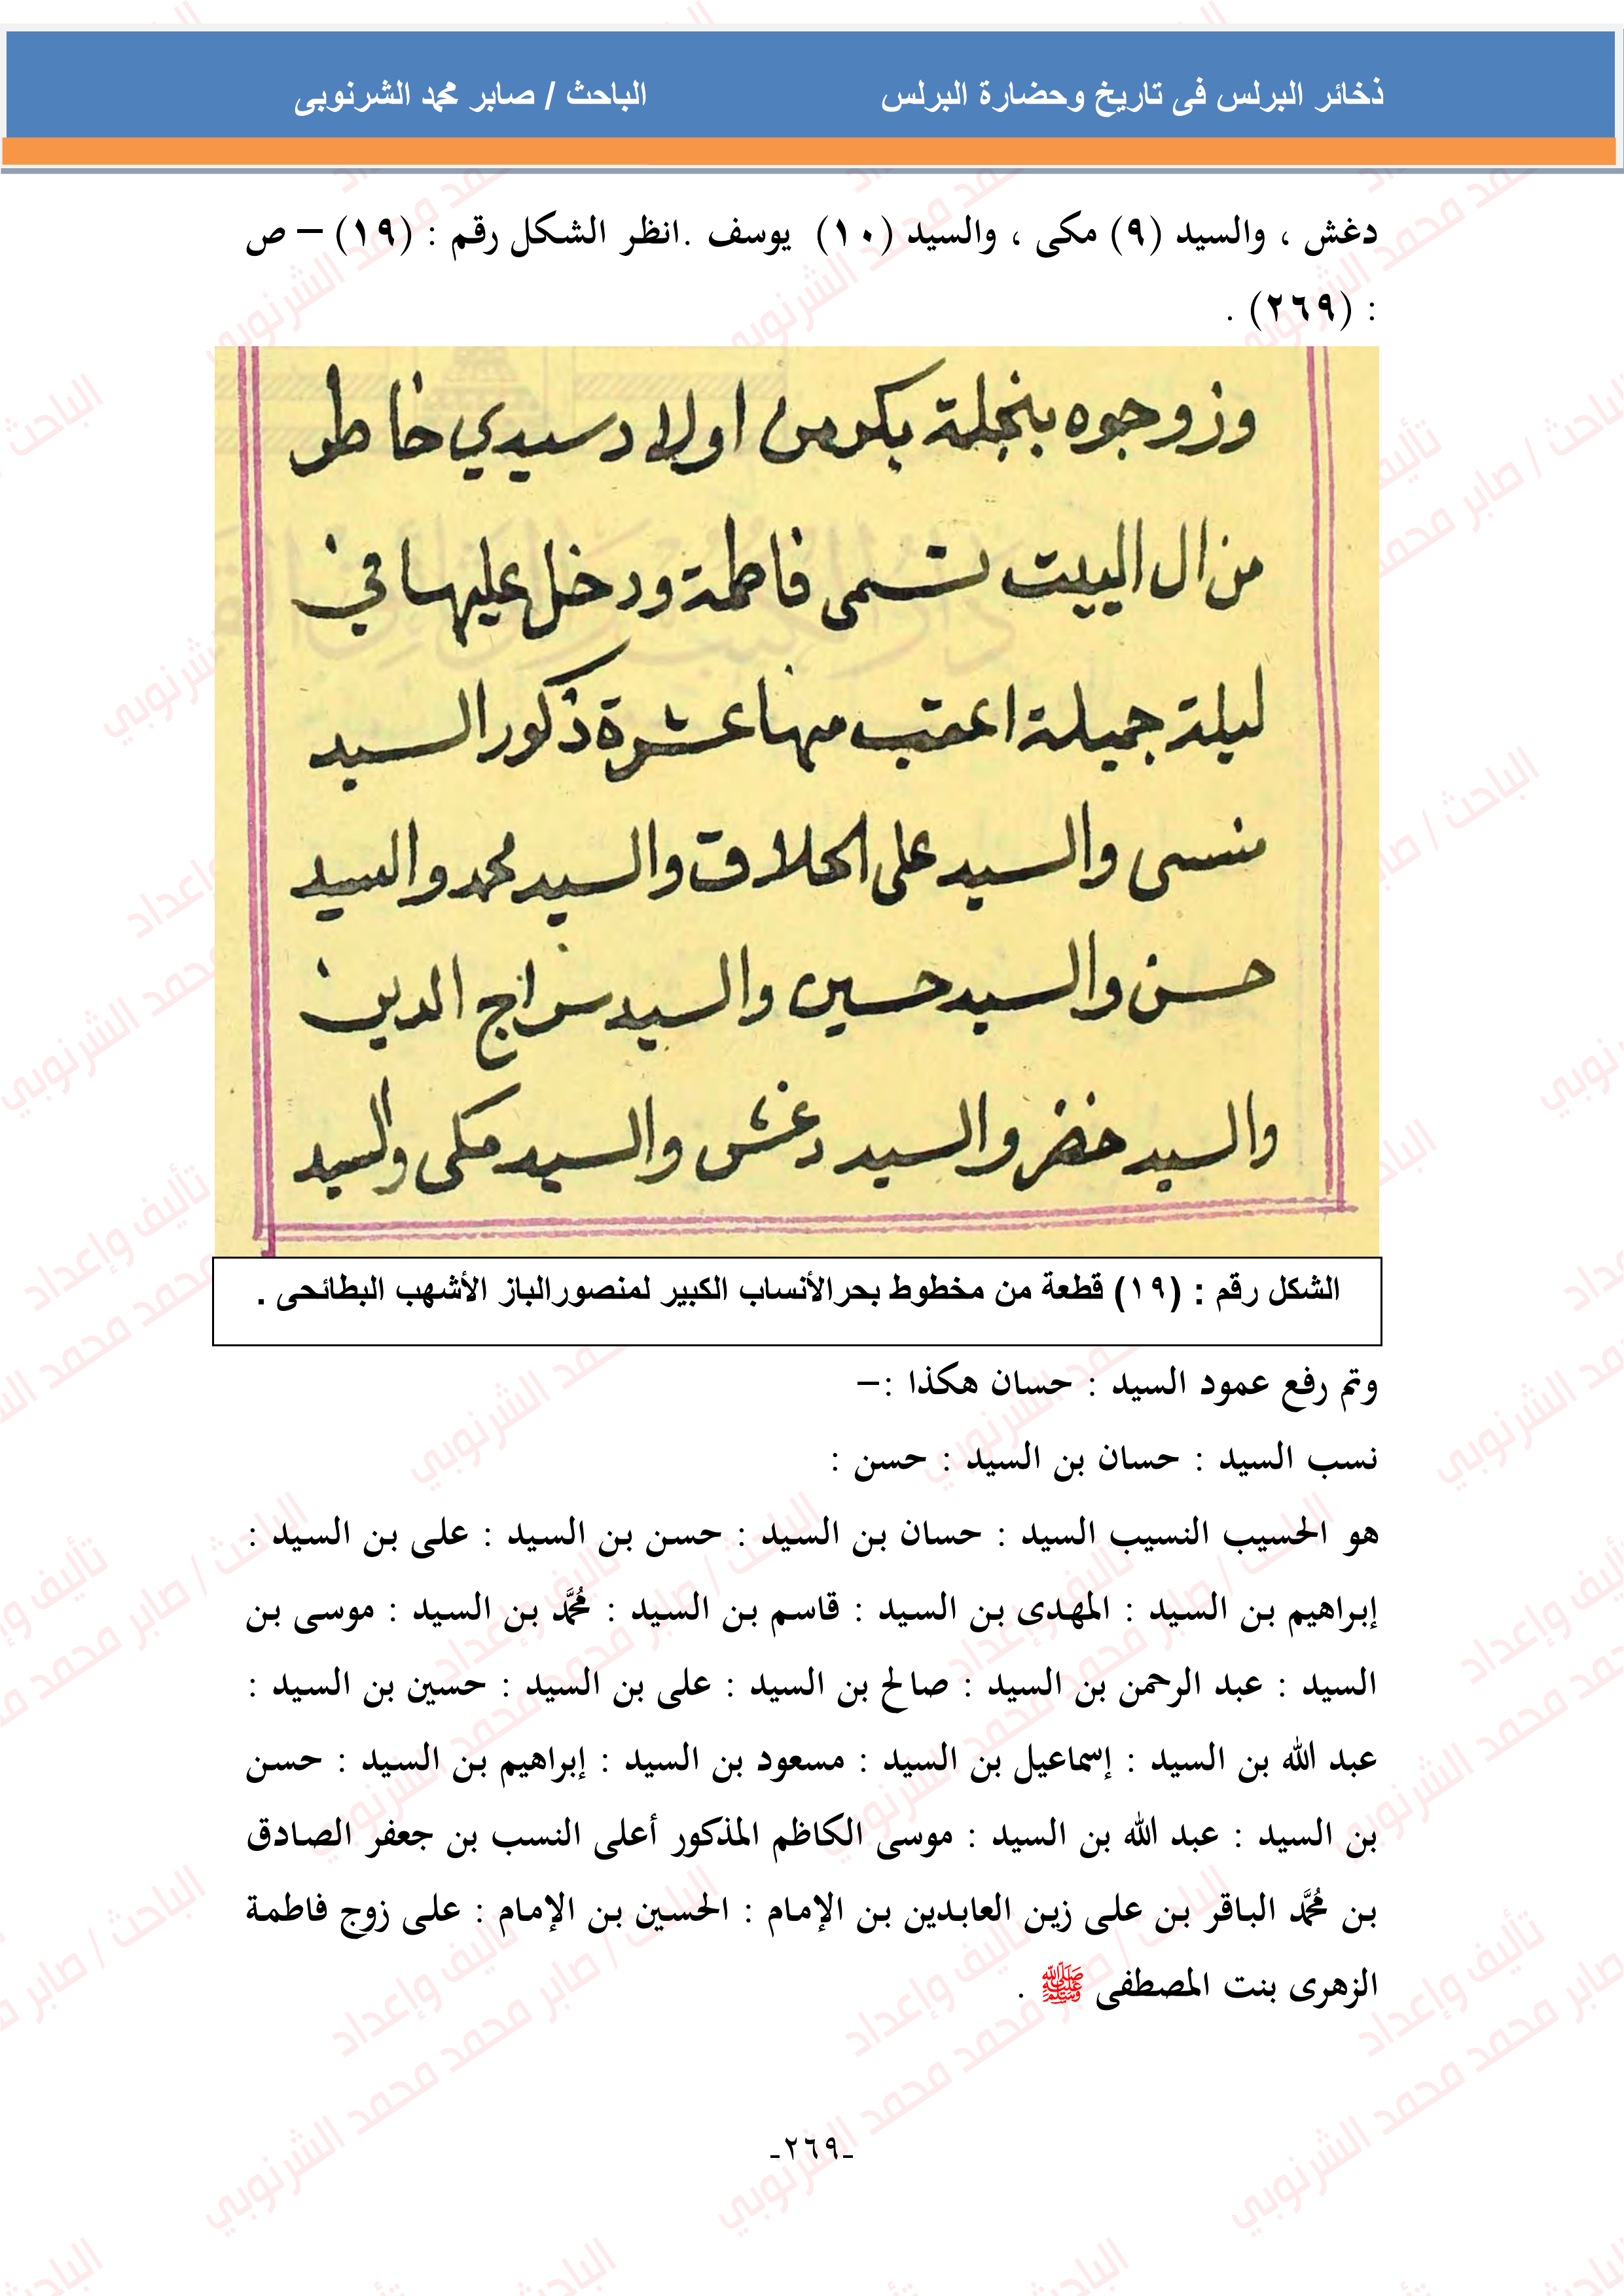 ذخائر البرلس فى تاريخ وحضارة البرلس الباحث / صابر محمد الشرنوبى
دغش ، والسيد (٩) مكى ، والسيد (١٠) يوسف .انظر الشكل رقم : (١٩) – ص
: (٢٦٩) .
وزوجوه بنجلة بكر من اولاد سيدي خاطر
من ال البيت تسمى فاطمة ودخل عليها في
ليلة جميلة اعقب منها عشرة ذكور السيد
منسى والسيد على الحلاق والسيد محمد والسيد
حسن والسيد حسين والسيد سراج الدين
والسيد خضر والسيد دغش والسيد مكى والسيد
الشكل رقم : (١٩) قطعة من مخطوط بحرالأنساب الكبير لمنصورالباز الأشهب البطائحى .
وتم رفع عمود السيد : حسان هكذا :–
نسب السيد : حسان بن السيد : حسن :
هو الحسيب النسيب السيد : حسان بن السيد : حسن بن السيد : على بن السيد :
إبراهيم بن السيد : المهدى بن السيد : قاسم بن السيد : مُحَمَّد بن السيد : موسى بن
السيد : عبد الرحمن بن السيد : صالح بن السيد : على بن السيد : حسين بن السيد :
عبد الله بن السيد : إسماعيل بن السيد : مسعود بن السيد : إبراهيم بن السيد : حسن
بن السيد : عبد الله بن السيد : موسى الكاظم المذكور أعلى النسب بن جعفر الصادق
بن مُحَمَّد الباقر بن على زين العابدين بن الإمام : الحسين بن الإمام : على زوج فاطمة
الزهرى بنت المصطفى ﷺ .
-٢٦٩-
تأليف وإعداد
الباحث / صابر محمد محمد الشرنوبي